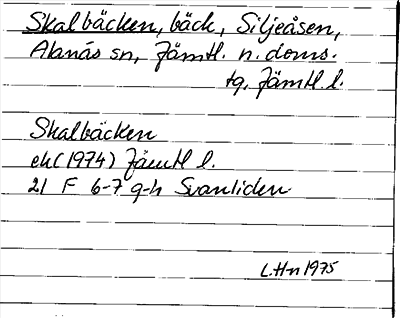 Skalbäcken, bäck, Siljeåsen,
Alanäs sn, Jämtl. n. doms.
tg, Jämtl. l.
Skalbäcken
ek (1974) Jämtl l.
21 F 6-7 g-h Svanliden
L.Hn 1975